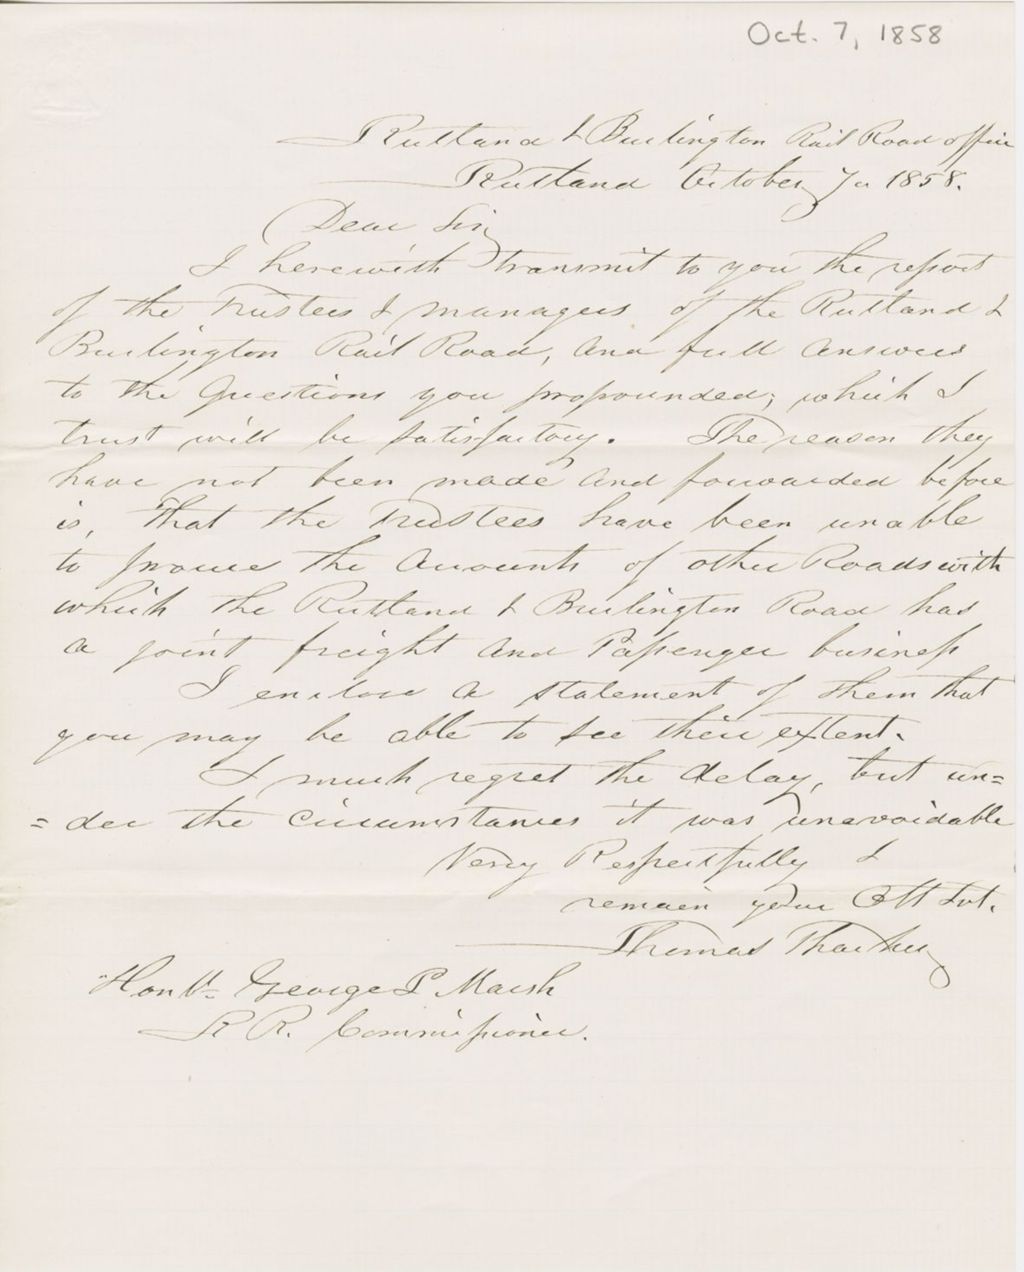 Oct. 7, 1858
Rutland & Burlington Rail Road office
Rutland October 7th 1858.
Dear Sir,
I herewith transmit to you the report
of the Trustees & managers of the Rutland &
Burlington Rail Road, and full answers
to the Questions you propounded, which I
trust will be satisfactory. The reason they
have not been made and forwarded before
is, that the Trustees have been unable
to procure the Accounts of other Roads with
which the Rutland & Burlington Road has
a joint freight and Passenger business
I enclose a statement of them that
you may be able to see their extent.
I much regret the delay, but un=
=der the circumstances it was unavoidable
Very Respectfully I
remain your Obt Svt.
Thomas Thatcher
Honbl George P Marsh
R R. Commissioner.